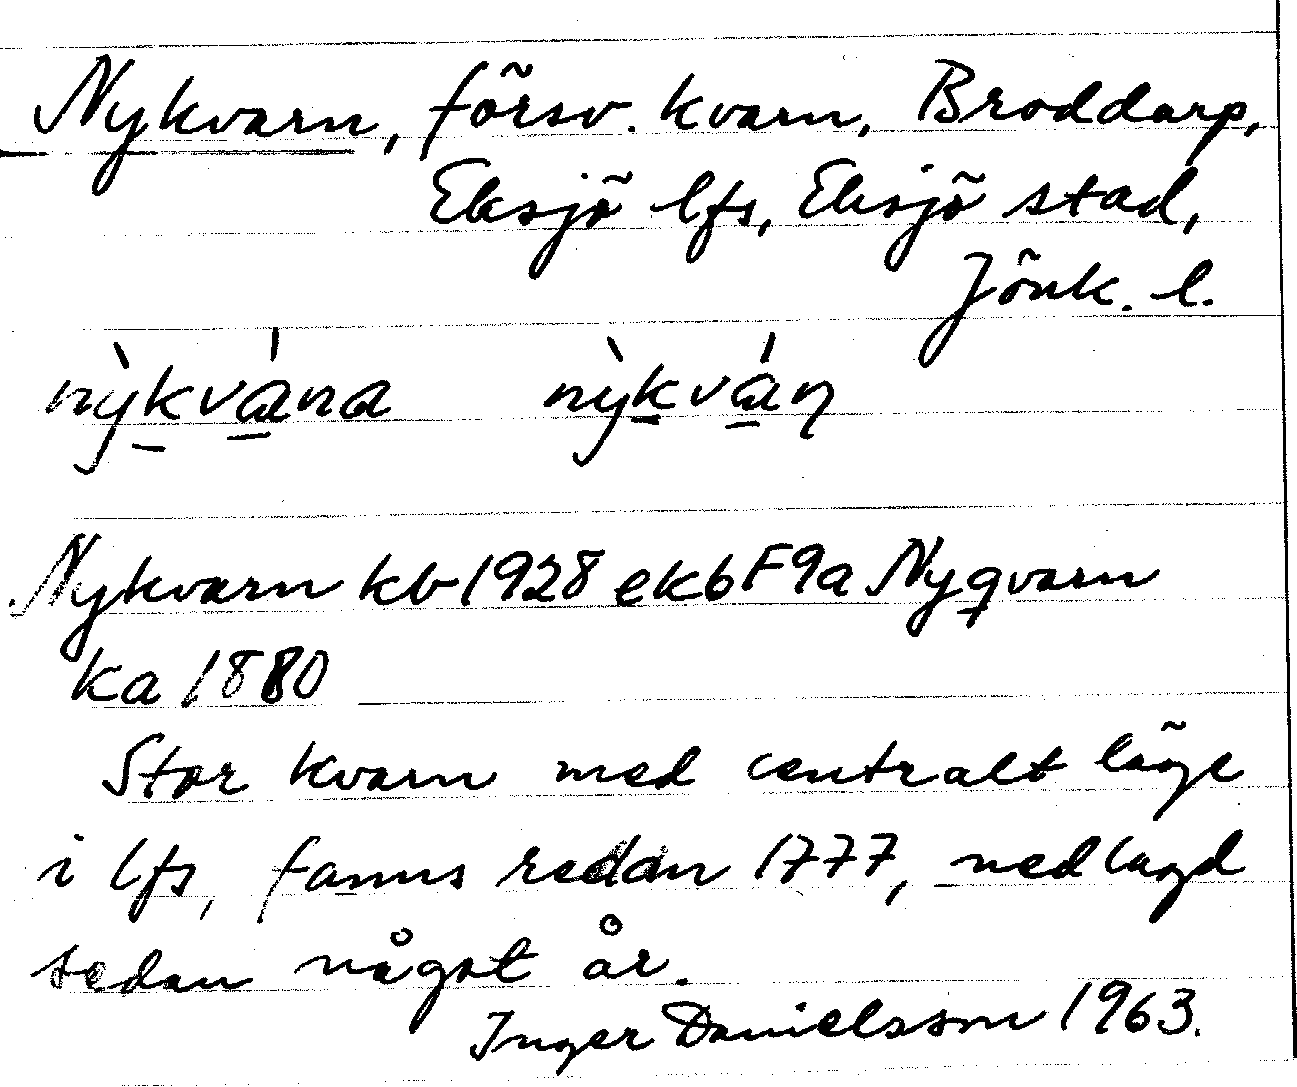 Nykvarn, försv. kvarn, Broddarp,
Eksjö lfs, Eksjö stad,
Jönk. l.
nỳkvána nỳkváɳ
Nykvarn kb 1928 ekb F9a Nyqvarn
ka 1880
Stor kvarn med centralt läge
i lfs, fanns redan 1777, nedlagd
sedan något år.
Inger Danielsson 1963.